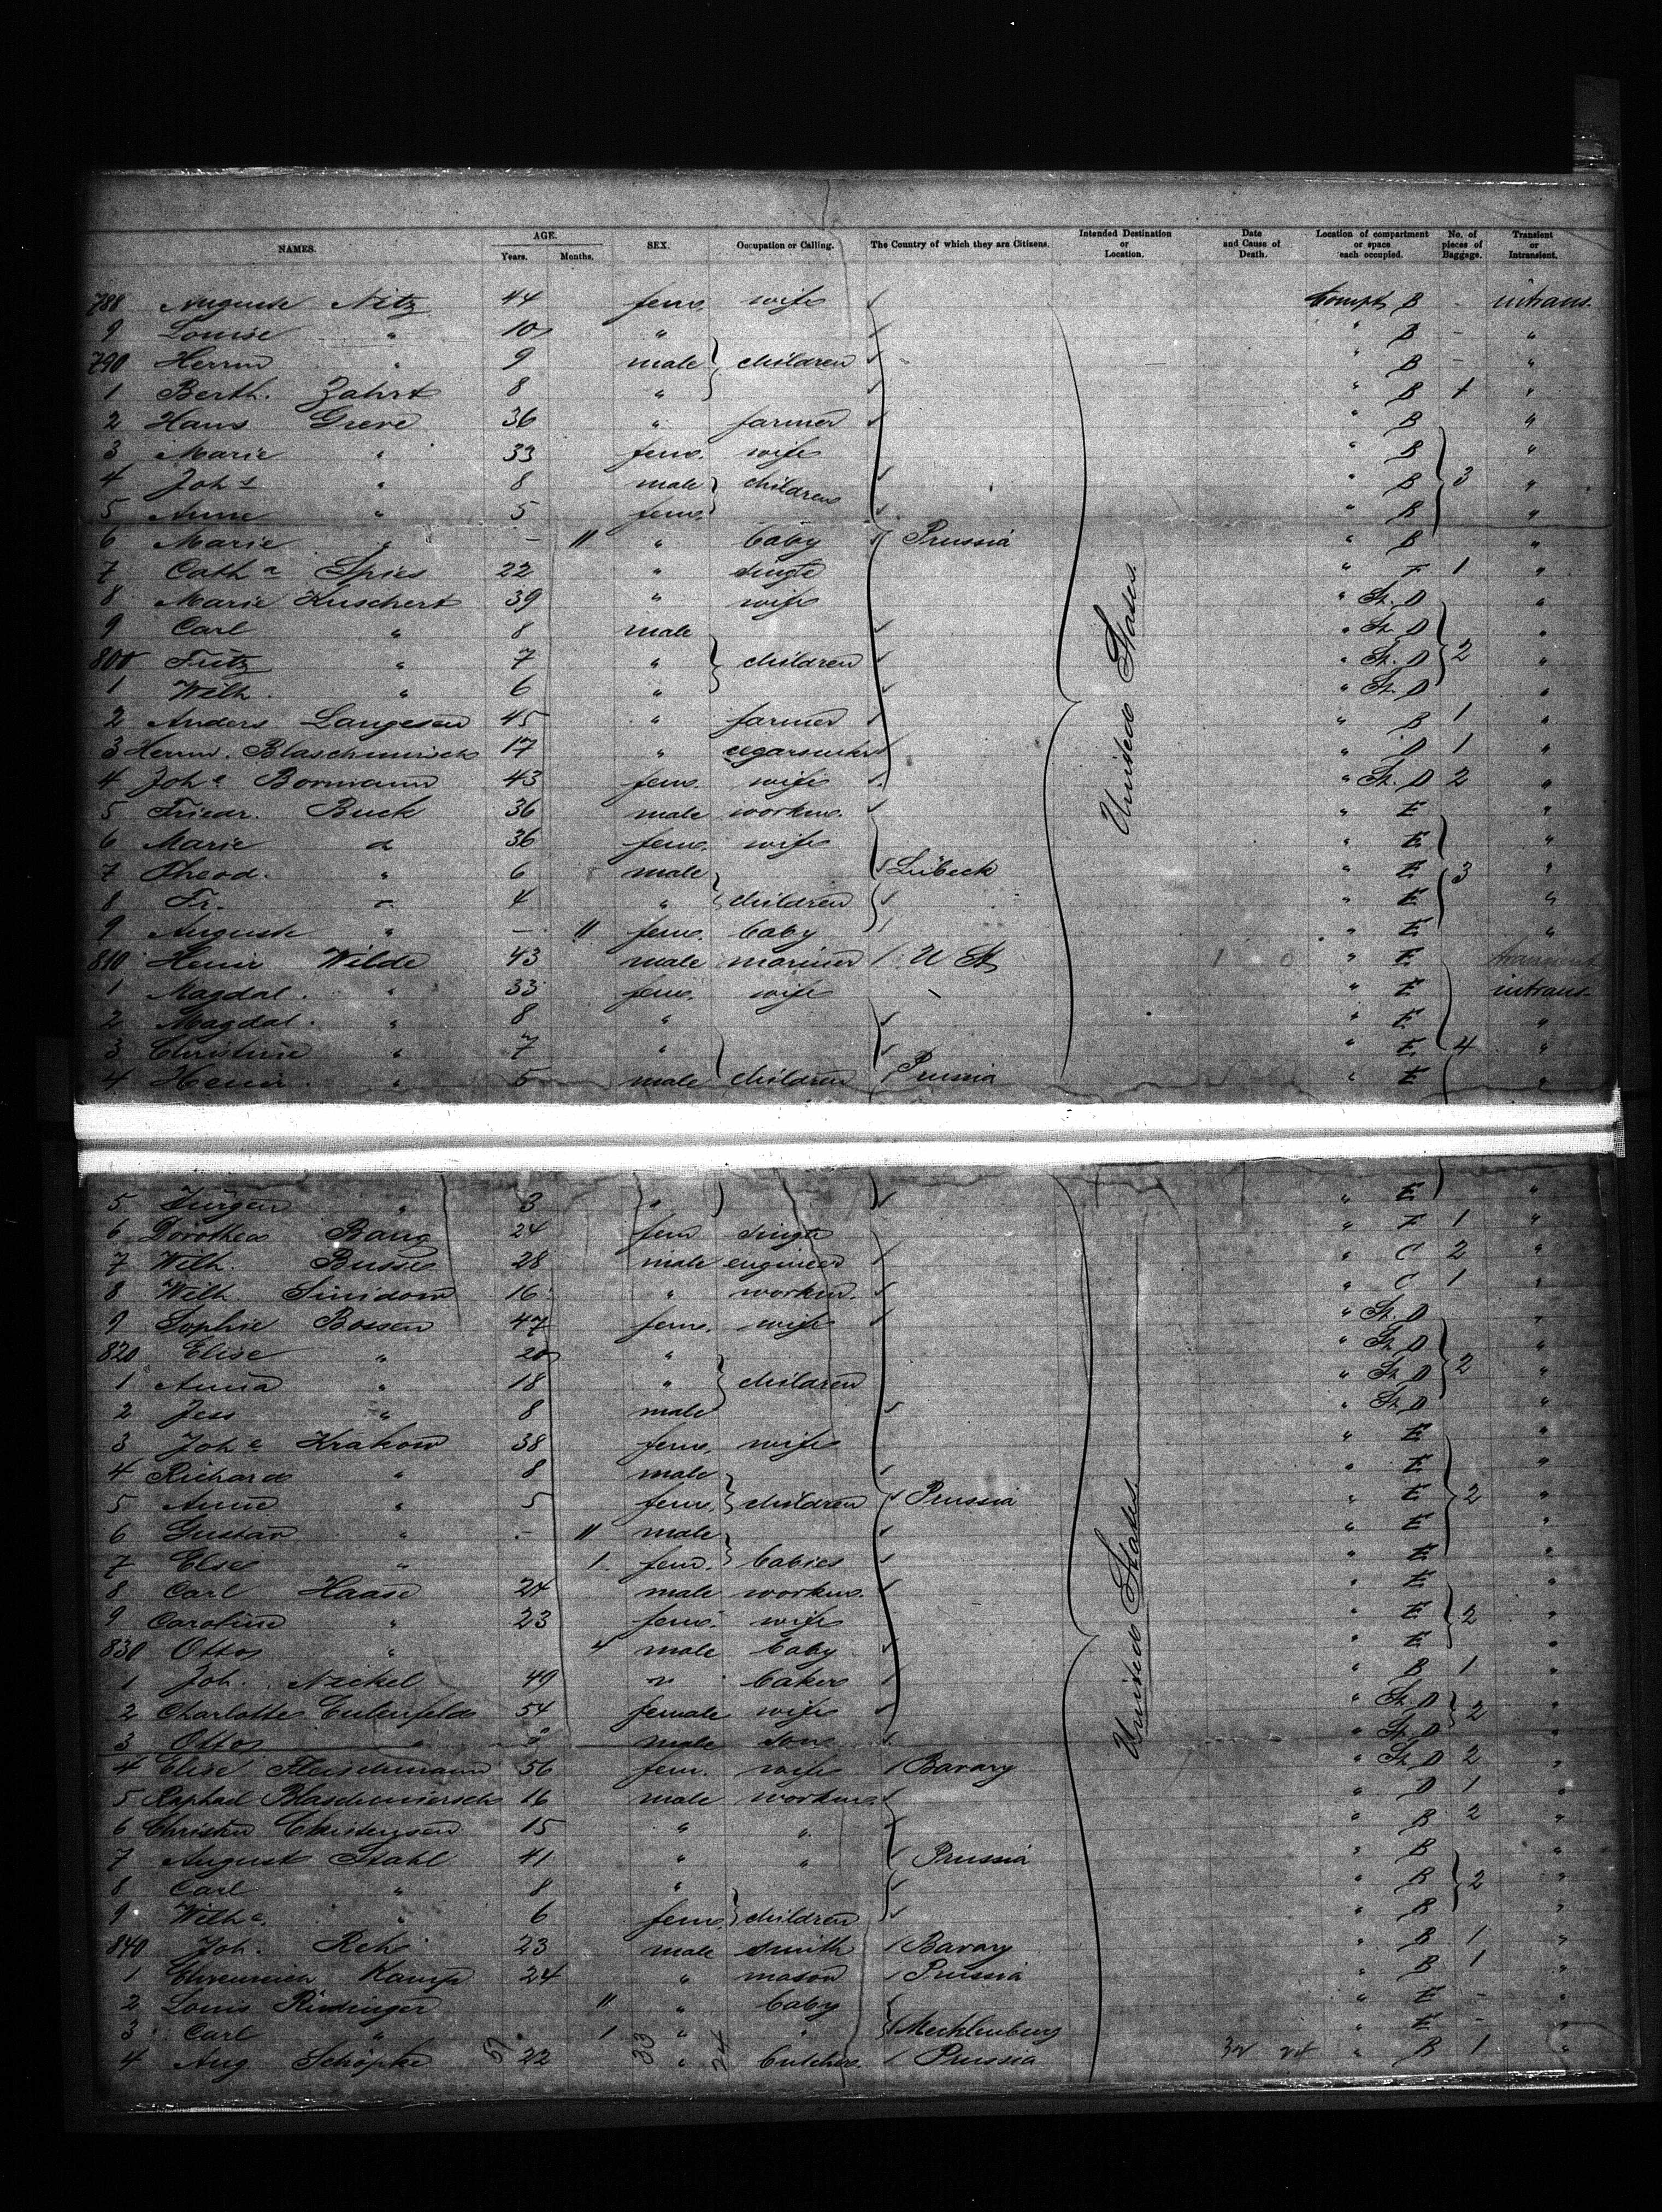 NAMES. AGE. Years. Months. SEX. Occupation or Calling. The Country of which they are Citizens. Intended Destination or Location. Date and Cause of Death. Location of compartment or space each occupied. No. of pieces of Baggage. Transient or Intransient.
788 Auguste Nitz 44 fem. wife Compt. B - intrans.
9 Louise " 10 " " B - "
790 Herrm " 9 male children " B - "
1 Berth. Zahrt 8 " " B 1 "
2 Hans Greve 36 " farmer " B "
3 Marie " 33 fem. wife " B "
4 Johs " 8 male children " B 3 "
5 Anne " 5 fem. " B "
6 Marie " - 11 " baby Prussia " B "
7 Catha Spies 22 " single " F 1 "
8 Marie Kuschert 39 " wife " St. D "
9 Carl " 8 male " St. D "
800 Fritz " 7 " children " St. D 2 "
1 Wilh. " 6 " " St. D "
2 Anders Langesen 45 " farmer " B 1 "
3 Herrm. 17 " " D 1 "
4 Johe Bormann 43 fem. wife " St. D 2 "
United States.
5 Friedr. Buck 36 male workm. " E "
6 Marie " 36 fem. wife " E "
7 Theod. " 6 male Lübeck " E 3 "
8 Fr. " 4 " children " E "
9 Auguste " - 11 fem. baby " E "
810 Heinr Wilde 43 male mariner U St " E transient
1 Magdal. " 33 fem. wife " E intrans.
2 Magdal. " 8 " " E "
3 Christine " 7 " " E 4 "
4 Heinr. " 5 male children Prussia " E "
5 Jürgen " 3 " " E "
6 Dorothea Bang 24 fem single " F 1 "
7 Wilh. Busse 28 male engineer " C 2 "
8 Wilh. 16 " workm. " C 1 "
9 Sophie Bossen 47 fem. wife " St. D "
820 Elise " 20 " " St. D "
1 Anna " 18 " children " St. D 2 "
2 Jess " 8 male " St. D "
3 Johe Krakow 38 fem. wife " E "
4 Richard " 8 male " E "
5 Anne " 5 fem. children Prussia " E 2 "
6 Gustav " - 11 male " E "
7 Else " 1 fem. babies " E "
8 Carl Haase 24 male workm. " E "
9 Caroline " 23 fem. wife " E 2 "
830 Otto " 4 male baby " E "
1 Joh. Nickel 49 " baker " B 1 "
2 Charlotte Eulenfeld 54 female wife " St. D 2 "
3 Otto " male son " St. D "
United States.
4 Elise Fleischmann 56 fem. wife Bavary " St. D 2 "
5 Raphael 16 male workm. " D 1 "
6 Christen Christensen 15 " " " B 2 "
7 August Stahl 41 " " Prussia " B "
8 Carl " 8 " " B 2 "
9 Wilhe. " 6 fem. children " B "
840 Joh. Reh 23 male smith Bavary " B 1 "
1 Ehrenreich Kamp 24 " mason Prussia " B 1 "
2 Louis 11 " baby " E - "
3 Carl " 1 " " Mecklenburg " E - "
4 Aug Schöpke 22 " butcher Prussia " B 1 "
57 33 24 32 24